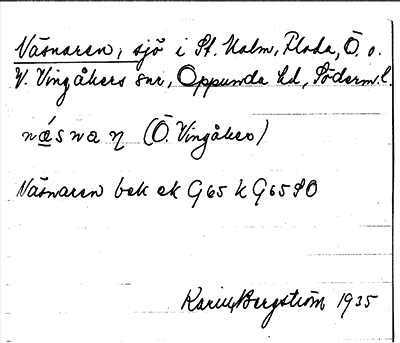 Näsnaren, sjö i St. Malm, Floda, Ö. o.
V. Vingåkers snr, Oppunda hd, Söderm.l.
näsnaɳ (Ö. Vingåker)
Näsnaren bek ek G65 k G65 SO
Karin Bergström 1935